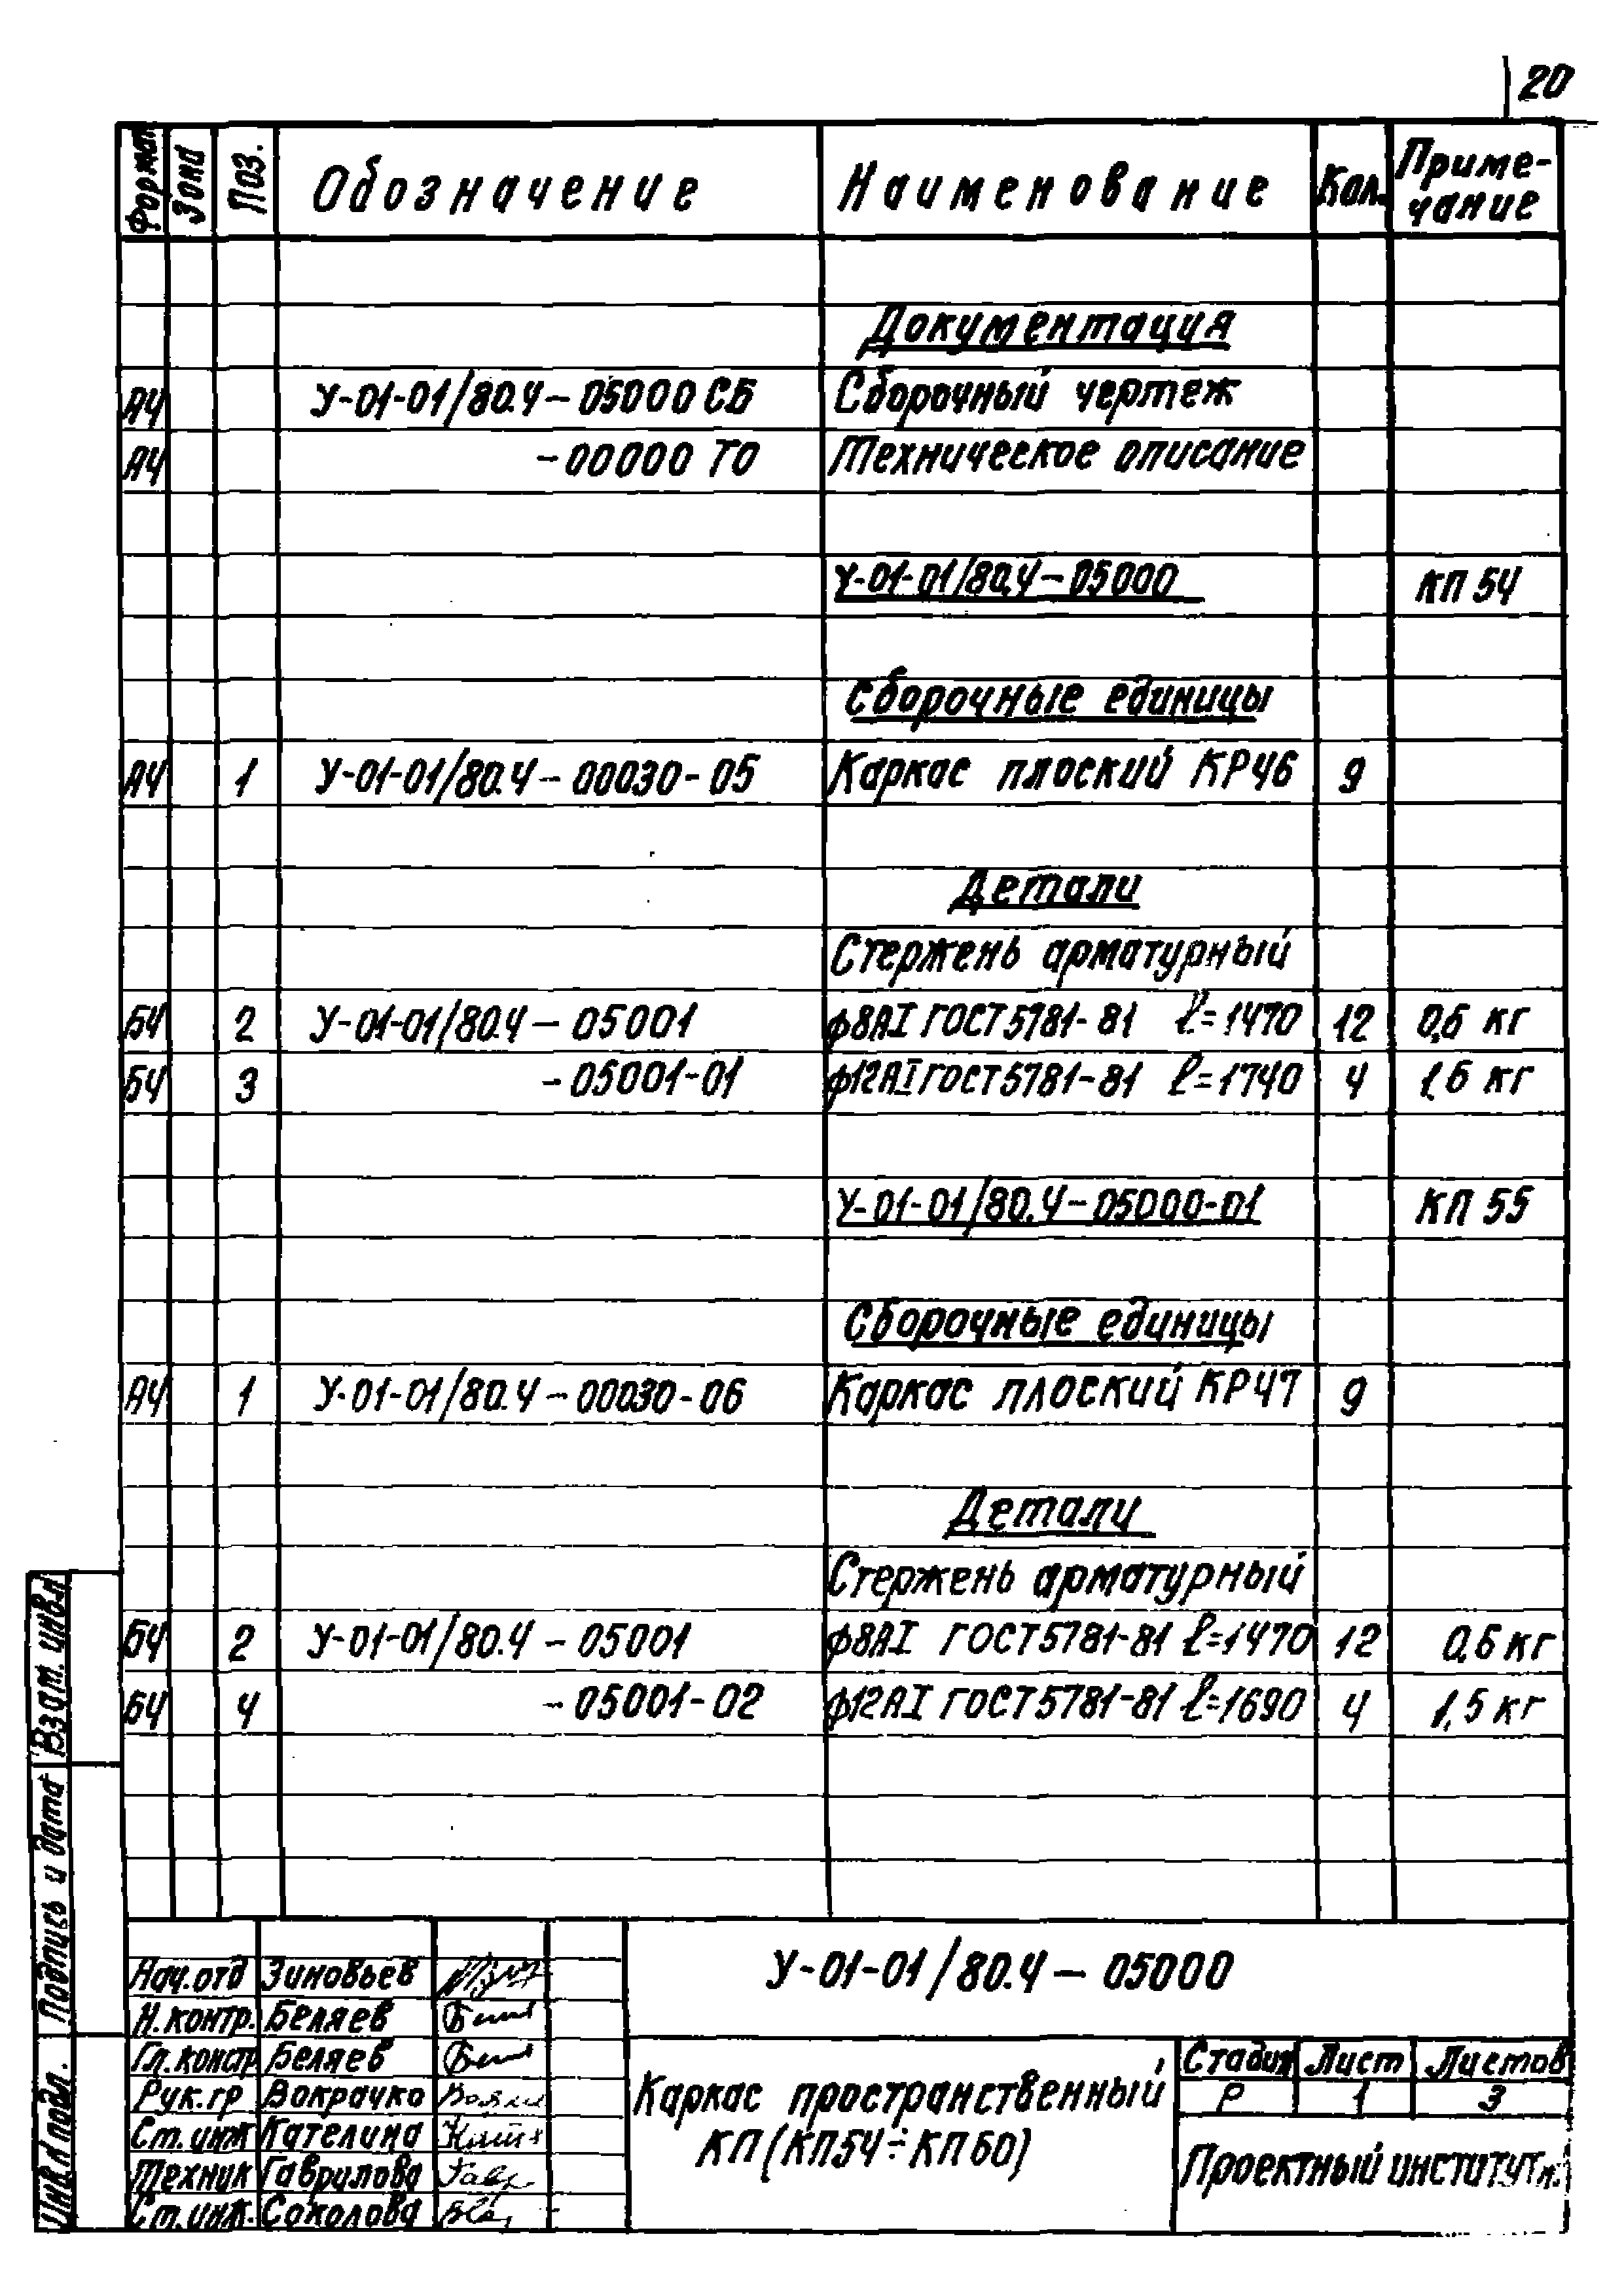 20
Формат Зона Поз. Обозначение Наименование Кол. Приме-
чание
Документация
А4 У-01-01/80.4-05000 СБ Сборочный чертеж
А4 -00000 ТО Техническое описание
У-01-01/80.4-05000 КП 54
Сборочные единицы
А4 1 У-01-01/80.4-00030-05 Каркас плоский КР46 9
Детали
Стержень арматурный
БЧ 2 У-01-01/80.4-05001 ф8АI ГОСТ 5781-81 ℓ=1470 12 0,6 кг
БЧ 3 -05001-01 ф12АI ГОСТ 5781-81 ℓ=1740 4 1,6 кг
У-01-01/80.4-05000-01 КП 55
Сборочные единицы
А4 1 У-01-01/80.4-00030-06 Каркас плоский КР47 9
Детали
Стержень арматурный
БЧ 2 У-01-01/80.4-05001 ф8АI ГОСТ 5781-81 ℓ=1470 12 0,6 кг
БЧ 4 -05001-02 ф12АI ГОСТ 5781-81 ℓ=1690 4 1,5 кг
Взам. инв.
Подпись и дата
Инв. подл.
Нач.отд Зиновьев
Н.контр. Беляев
Гл.констр Беляев
Рук.гр Вокрачко
Ст.инж Кателина
Техник Гаврилова
Ст.инж. Соколова
У-01-01/80.4-05000
Каркас пространственный
КП (КП54÷КП60)
Стадия Лист Листов
Р 1 3
Проектный институт